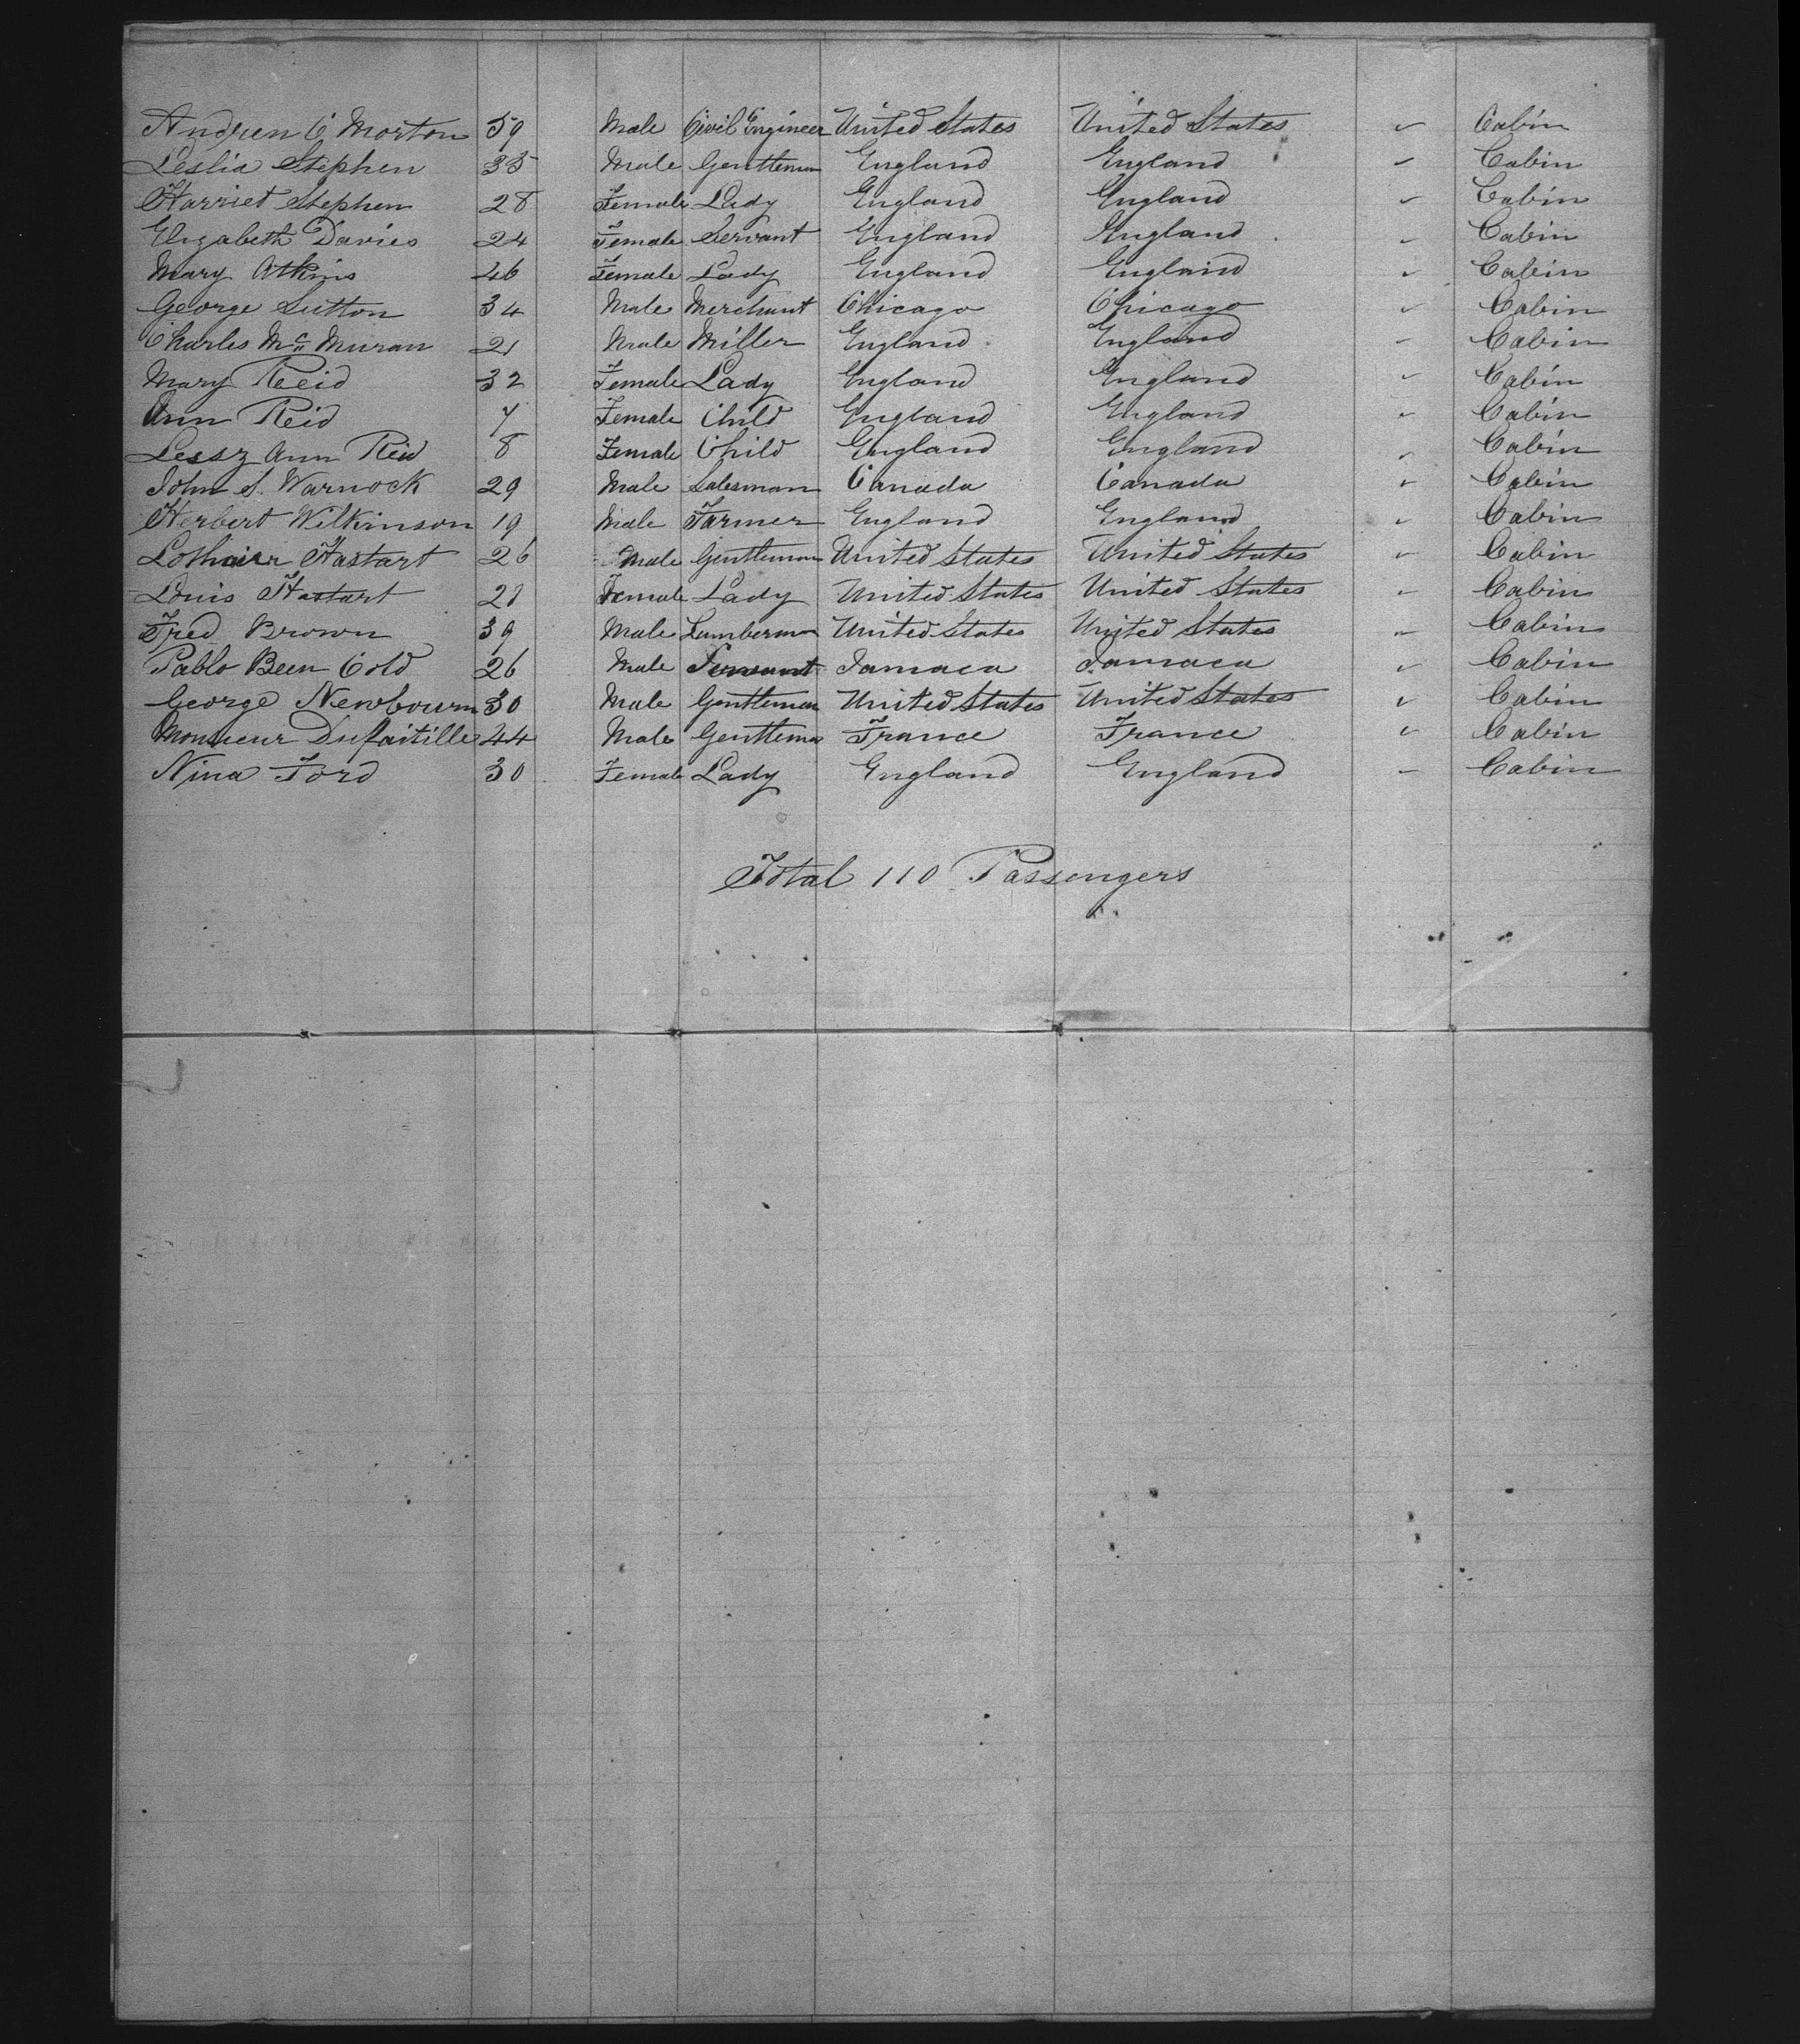 Andrew C Morton 59 Male Civil Engineer United States United States ✓ Cabin
Leslia Stephen 35 Male Gentleman England England ✓ Cabin
Harriet Stephen 28 Female Lady England England ✓ Cabin
Elizabeth Davies 24 Female Servant England England ✓ Cabin
Mary Atkins 46 Female Lady England England ✓ Cabin
George Sutton 34 Male Merchant Chicago Chicago ✓ Cabin
Charles Mc Muran 21 Male Miller England England ✓ Cabin
Mary Reid 32 Female Lady England England ✓ Cabin
Ann Reid 7 Female Child England England ✓ Cabin
Ann Reid 8 Female Child England England ✓ Cabin
John S. Warnock 29 Male Salesman Canada Canada ✓ Cabin
Herbert Wilkinson 19 Male Farmer England England ✓ Cabin
Hastart 26 Male Gentleman United States United States ✓ Cabin
Louis Hastart 21 Female Lady United States United States ✓ Cabin
Fred Brown 39 Male Lumberman United States United States ✓ Cabin
Pablo Been Cold 26 Male Servant Jamaca Jamaca ✓ Cabin
George Newbourn 30 Male Gentleman United States United States ✓ Cabin
Monsieur 44 Male Gentleman France France ✓ Cabin
Nina Ford 30 Female Lady England England ✓ Cabin
Total 110 Passengers